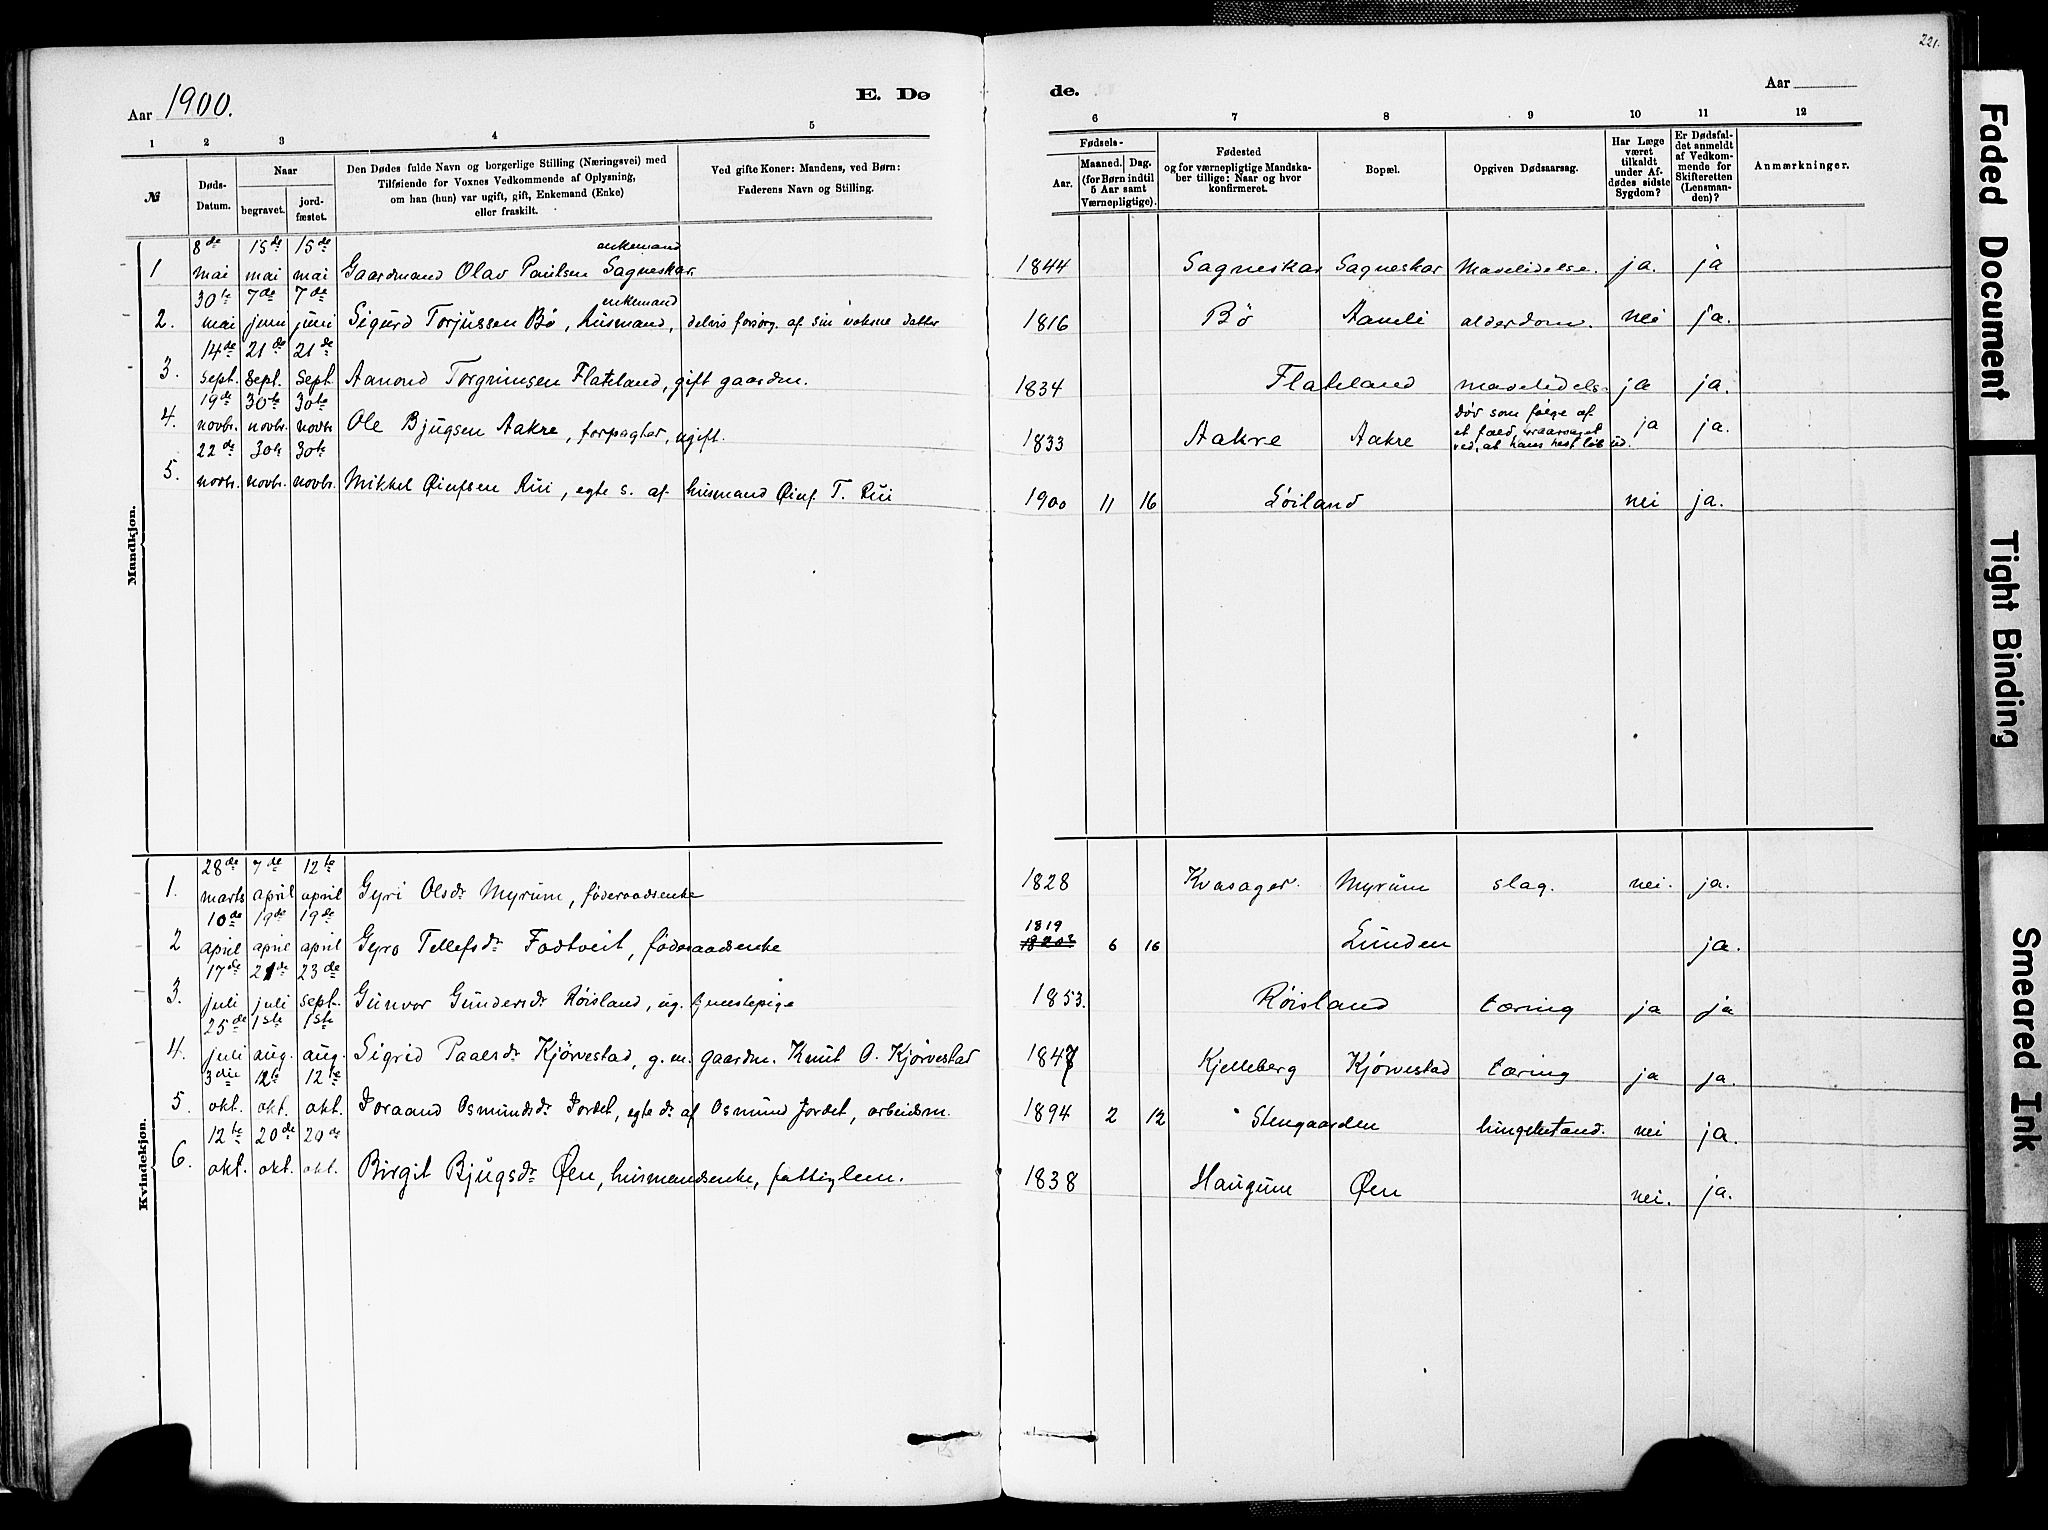 221.
Aar 1900.
E. Dø
de.
Aar
1 2 3 4 5
6 7 8 9 10 11 12
№
Døds-Datum.
Naar
begravet.
jord-fæstet.
Den Dødes fulde Navn og borgerlige Stilling (Næringsvei) med
Tilføiende for Voxnes Vedkommende af Oplysning,
om han (hun) var ugift, gift, Enkemand (Enke)
eller fraskilt.
Ved gifte Koner: Mandens, ved Børn:
Faderens Navn og Stilling.
Fødsels-
Aar.
Maaned. Dag.
(for Børn indtil
5 Aar samt
Værnepligtige).
Fødested
og for værnepligtige Mandska-
ber tillige: Naar og hvor
konfirmeret.
Bopæl.
Opgiven Dødsaarsag.
Har Læge
været
tilkaldt
under Af-
dødes sidste
Sygdom?
Er Dødsfal-
det anmeldt
af Vedkom-
mende for
Skifteretten
(Lensman-
den)?
Anmærkninger.
Mandkjøn.
8de 15de 15de enkemand
1 mai mai mai Gaardmand Olav Paulsen Sagneskar 1844 Sagneskar Sagneskar Mavelidelse. ja. ja
30te 7de 7de enkemand
2. mai juni juni Sigurd Torjussen Bö, Husmand, delvis forsørg. af sin voksne datter 1816 Bö Aamli alderdom. nei ja.
14de 21de 21de
3. sept. sept. sept. Aanond Torgrimsen Flateland, gift gaardm. 1834 Flateland mavelidels. ja ja.
19de 30te 30te
4. novbr. novbr. novbr Ole Bjugsen Aakre, forpagter, ugift. 1833 Aakre Aakre Døv som følge af
et fald, foraarsaget
ved, at hans hest løb ud. ja ja.
22de 30te 30te
5. novbr. novbr. novbr. Mikkel Öiufsen Rui, egte s. af husmand Öiuf T. Rui 1900 11 16 Löiland nei ja.
Kvindekjøn.
28de 7de 12te
1. marts april april Gyri Olsdr Myrum, föderaadsenke 1828 Kvasager. Myrum slag. nei. ja.
10de 19de 19de 1819
2 april april april Gyro Tellefsdr Fodtveit, föderaadsenke 6 16 Lunden ja.
17de 21de 23de
3. juli juli sept. Gunvor Gundersdr Röisland, ug. tjenestepige 1853. Röisland tæring ja ja
25de 1ste 1ste
4. juli aug. aug. Sigrid Paalsdr Kjörvestad, g. m. gaardm. Knut O. Kjörvestad 1847 Kjelleberg Kjørvestad tæring ja ja.
3die 12te 12te
5. okt. okt. okt. Joraand Osmundsdr Jordet, egte dr af Osmund Jordet, arbeidsm. 1894 2 12 Stengaarden lungebetænd. nei ja.
12te 20de 20de
6. okt. okt. okt. Birgit Bjugsdr Øen, husmandsenke, fattiglem. 1838 Haugum Øen nei. ja.
Faded Document
Tight Binding
Smeared Ink